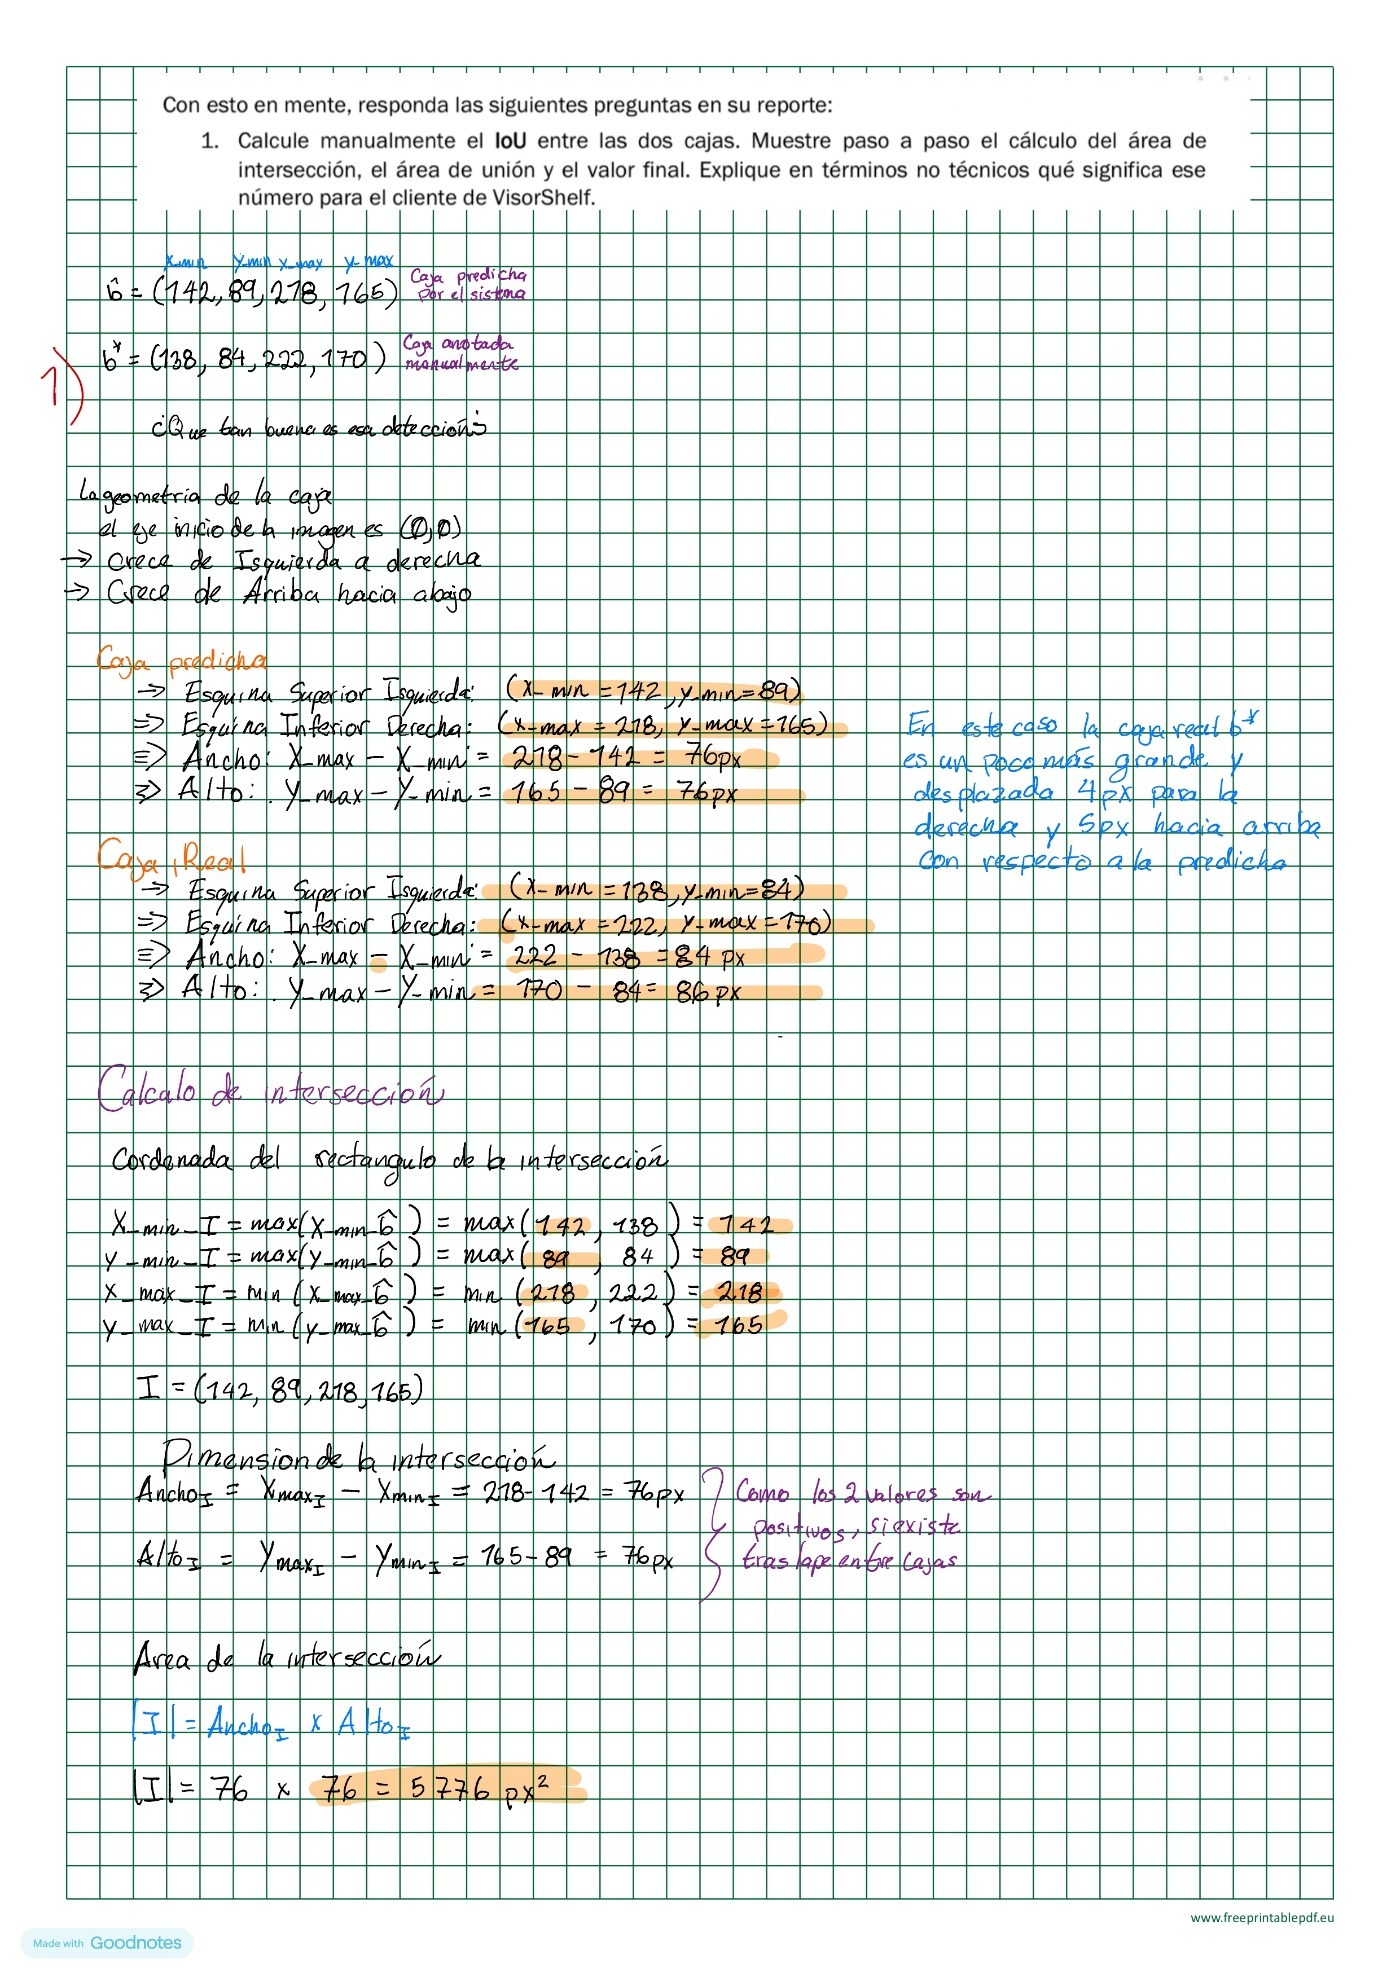 Con esto en mente, responda las siguientes preguntas en su reporte:
1. Calcule manualmente el IoU entre las dos cajas. Muestre paso a paso el cálculo del área de
intersección, el área de unión y el valor final. Explique en términos no técnicos qué significa ese
número para el cliente de VisorShelf.
x_min y_min x_max y_max
b̂ = (142, 89, 218, 165) Caja predicha
por el sistema
1)
b* = (138, 84, 222, 170) Caja anotada
manualmente
¿Que tan buena es esa detección?
La geometria de la caja
el eje inicio de la imagen es (0,0)
→ Crece de Isquierda a derecha
→ Crece de Arriba hacia abajo
Caja predicha
→ Esquina Superior Isquierda: (x_min = 142, y_min = 89)
⇒ Esquina Inferior Derecha: (x_max = 218, y_max = 165)
⇒ Ancho: X_max - X_min = 218 - 142 = 76px
⇒ Alto: Y_max - Y_min = 165 - 89 = 76px
En este caso la caja real b*
es un poco más grande y
desplazada 4px para la
derecha y 5px hacia arriba
con respecto a la predicha
Caja Real
→ Esquina Superior Isquierda: (x_min = 138, y_min = 84)
⇒ Esquina Inferior Derecha: (x_max = 222, y_max = 170)
⇒ Ancho: X_max - X_min = 222 - 138 = 84 px
⇒ Alto: Y_max - Y_min = 170 - 84 = 86 px
Calcalo de intersección
Cordenada del rectangulo de la intersección
X_min_I = max(X_min_b̂) = max(142, 138) = 142
y_min_I = max(y_min_b̂) = max(89, 84) = 89
X_max_I = min(X_max_b̂) = min(218, 222) = 218
y_max_I = min(y_max_b̂) = min(165, 170) = 165
I = (142, 89, 218, 165)
Dimension de la intersección
Ancho_I = X_max_I - X_min_I = 218 - 142 = 76px
Alto_I = Y_max_I - Y_min_I = 165 - 89 = 76px
Como los 2 valores son
positivos, si existe
traslape entre cajas
Area de la intersección
|I| = Ancho_I x Alto_I
|I| = 76 x 76 = 5776 px²
www.freeprintablepdf.eu
Made with Goodnotes